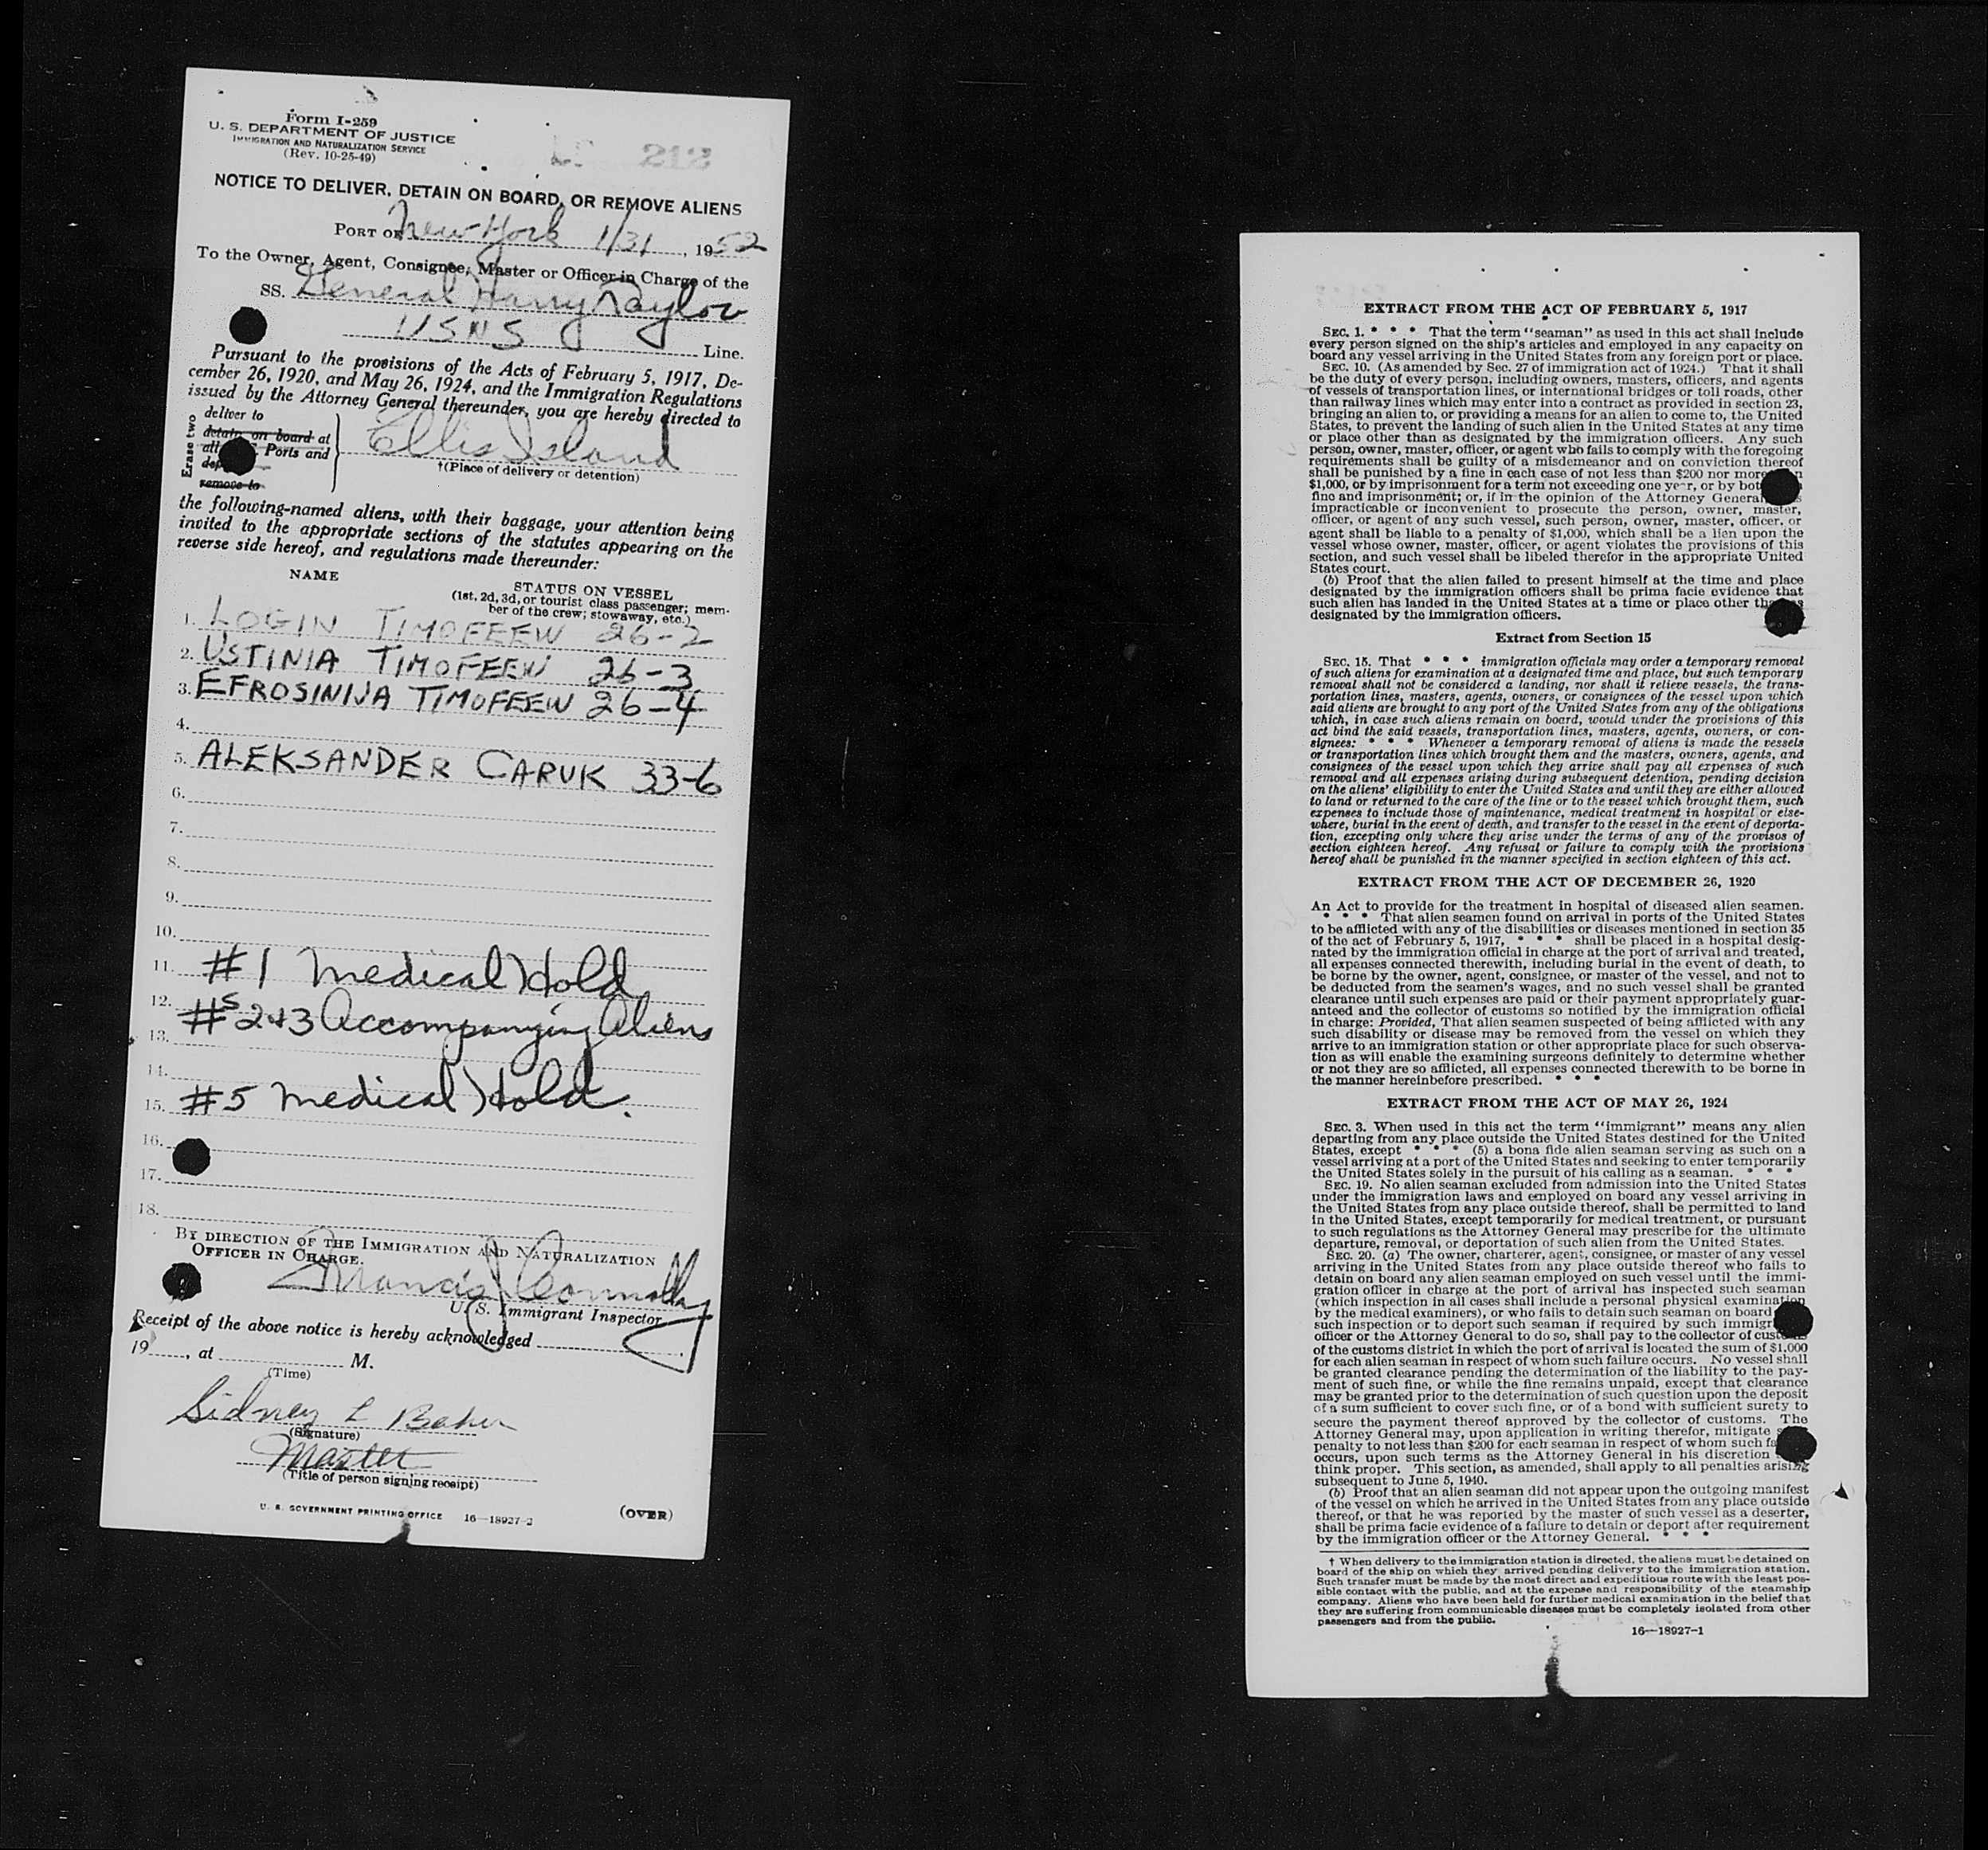 Form I-259
U. S. DEPARTMENT OF JUSTICE
IMMIGRATION AND NATURALIZATION SERVICE
(Rev. 10-25-49)
212
NOTICE TO DELIVER, DETAIN ON BOARD, OR REMOVE ALIENS
PORT OF New York 1/31, 1952
To the Owner, Agent, Consignee, Master or Officer in Charge of the
SS. General Harry Taylor
USNS Line.
Pursuant to the provisions of the Acts of February 5, 1917, De-
cember 26, 1920, and May 26, 1924, and the Immigration Regulations
issued by the Attorney General thereunder, you are hereby directed to
Erase two
deliver to
detain on board at
all Ports and
remove to
Ellis Island
†(Place of delivery or detention)
the following-named aliens, with their baggage, your attention being
invited to the appropriate sections of the statutes appearing on the
reverse side hereof, and regulations made thereunder:
NAME
STATUS ON VESSEL
(1st, 2d, 3d, or tourist class passenger; mem-
ber of the crew; stowaway, etc.)
1. LOGIN TIMOFEEW 26-2
2. USTINIA TIMOFEEW 26-3
3. EFROSINIJA TIMOFEEW 26-4
4.
5. ALEKSANDER CARUK 33-6
6.
7.
8.
9.
10.
11. #1 Medical Hold
12. #s 2+3 Accompanying Aliens
13.
14.
15. #5 Medical Hold.
16.
17.
18.
BY DIRECTION OF THE IMMIGRATION AND NATURALIZATION
OFFICER IN CHARGE.
Francis J Connolly
U. S. Immigrant Inspector
Receipt of the above notice is hereby acknowledged
19, at M.
(Time)
Sidney L Baker
(Signature)
Master
(Title of person signing receipt)
U. S. GOVERNMENT PRINTING OFFICE 16—18927-2
(OVER)
EXTRACT FROM THE ACT OF FEBRUARY 5, 1917
SEC. 1. * * * That the term "seaman" as used in this act shall include
every person signed on the ship's articles and employed in any capacity on
board any vessel arriving in the United States from any foreign port or place.
SEC. 10. (As amended by Sec. 27 of immigration act of 1924.) That it shall
be the duty of every person, including owners, masters, officers, and agents
of vessels of transportation lines, or international bridges or toll roads, other
than railway lines which may enter into a contract as provided in section 23,
bringing an alien to, or providing a means for an alien to come to, the United
States, to prevent the landing of such alien in the United States at any time
or place other than as designated by the immigration officers. Any such
person, owner, master, officer, or agent who fails to comply with the foregoing
requirements shall be guilty of a misdemeanor and on conviction thereof
shall be punished by a fine in each case of not less than $200 nor more
$1,000, or by imprisonment for a term not exceeding one year, or by
fine and imprisonment; or, if in the opinion of the Attorney General
impracticable or inconvenient to prosecute the person, owner, master,
officer, or agent of any such vessel, such person, owner, master, officer, or
agent shall be liable to a penalty of $1,000, which shall be a lien upon the
vessel whose owner, master, officer, or agent violates the provisions of this
section, and such vessel shall be libeled therefor in the appropriate United
States court.
(b) Proof that the alien failed to present himself at the time and place
designated by the immigration officers shall be prima facie evidence that
such alien has landed in the United States at a time or place other
designated by the immigration officers.
Extract from Section 15
SEC. 15. That * * * immigration officials may order a temporary removal
of such aliens for examination at a designated time and place, but such temporary
removal shall not be considered a landing, nor shall it relieve vessels, the trans-
portation lines, masters, agents, owners, or consignees of the vessel upon which
said aliens are brought to any port of the United States from any of the obligations
which, in case such aliens remain on board, would under the provisions of this
act bind the said vessels, transportation lines, masters, agents, owners, or con-
signees: * * * Whenever a temporary removal of aliens is made the vessels
or transportation lines which brought them and the masters, owners, agents, and
consignees of the vessel upon which they arrive shall pay all expenses of such
removal and all expenses arising during subsequent detention, pending decision
on the aliens' eligibility to enter the United States and until they are either allowed
to land or returned to the care of the line or to the vessel which brought them, such
expenses to include those of maintenance, medical treatment in hospital or else-
where, burial in the event of death, and transfer to the vessel in the event of deporta-
tion, excepting only where they arise under the terms of any of the provisos of
section eighteen hereof. Any refusal or failure to comply with the provisions
hereof shall be punished in the manner specified in section eighteen of this act.
EXTRACT FROM THE ACT OF DECEMBER 26, 1920
An Act to provide for the treatment in hospital of diseased alien seamen.
* * * That alien seamen found on arrival in ports of the United States
to be afflicted with any of the disabilities or diseases mentioned in section 35
of the act of February 5, 1917, * * * shall be placed in a hospital desig-
nated by the immigration official in charge at the port of arrival and treated,
all expenses connected therewith, including burial in the event of death, to
be borne by the owner, agent, consignee, or master of the vessel, and not to
be deducted from the seamen's wages, and no such vessel shall be granted
clearance until such expenses are paid or their payment appropriately guar-
anteed and the collector of customs so notified by the immigration official
in charge: Provided, That alien seamen suspected of being afflicted with any
such disability or disease may be removed from the vessel on which they
arrive to an immigration station or other appropriate place for such observa-
tion as will enable the examining surgeons definitely to determine whether
or not they are so afflicted, all expenses connected therewith to be borne in
the manner hereinbefore prescribed. * * *
EXTRACT FROM THE ACT OF MAY 26, 1924
SEC. 3. When used in this act the term "immigrant" means any alien
departing from any place outside the United States destined for the United
States, except * * * (5) a bona fide alien seaman serving as such on a
vessel arriving at a port of the United States and seeking to enter temporarily
the United States solely in the pursuit of his calling as a seaman. * * *
SEC. 19. No alien seaman excluded from admission into the United States
under the immigration laws and employed on board any vessel arriving in
the United States from any place outside thereof, shall be permitted to land
in the United States, except temporarily for medical treatment, or pursuant
to such regulations as the Attorney General may prescribe for the ultimate
departure, removal, or deportation of such alien from the United States.
SEC. 20. (a) The owner, charterer, agent, consignee, or master of any vessel
arriving in the United States from any place outside thereof who fails to
detain on board any alien seaman employed on such vessel until the immi-
gration officer in charge at the port of arrival has inspected such seaman
(which inspection in all cases shall include a personal physical examination
by the medical examiners), or who fails to detain such seaman on board
such inspection or to deport such seaman if required by such
officer or the Attorney General to do so, shall pay to the collector of customs
of the customs district in which the port of arrival is located the sum of $1,000
for each alien seaman in respect of whom such failure occurs. No vessel shall
be granted clearance pending the determination of the liability to the pay-
ment of such fine, or while the fine remains unpaid, except that clearance
may be granted prior to the determination of such question upon the deposit
of a sum sufficient to cover such fine, or of a bond with sufficient surety to
secure the payment thereof approved by the collector of customs. The
Attorney General may, upon application in writing therefor, mitigate
penalty to not less than $200 for each seaman in respect of whom such
occurs, upon such terms as the Attorney General in his discretion
think proper. This section, as amended, shall apply to all penalties arising
subsequent to June 5, 1940.
(b) Proof that an alien seaman did not appear upon the outgoing manifest
of the vessel on which he arrived in the United States from any place outside
thereof, or that he was reported by the master of such vessel as a deserter,
shall be prima facie evidence of a failure to detain or deport after requirement
by the immigration officer or the Attorney General. * * *
† When delivery to the immigration station is directed, the aliens must be detained on
board of the ship on which they arrived pending delivery to the immigration station.
Such transfer must be made by the most direct and expeditious route with the least pos-
sible contact with the public, and at the expense and responsibility of the steamship
company. Aliens who have been held for further medical examination in the belief that
they are suffering from communicable diseases must be completely isolated from other
passengers and from the public.
16—18927-1